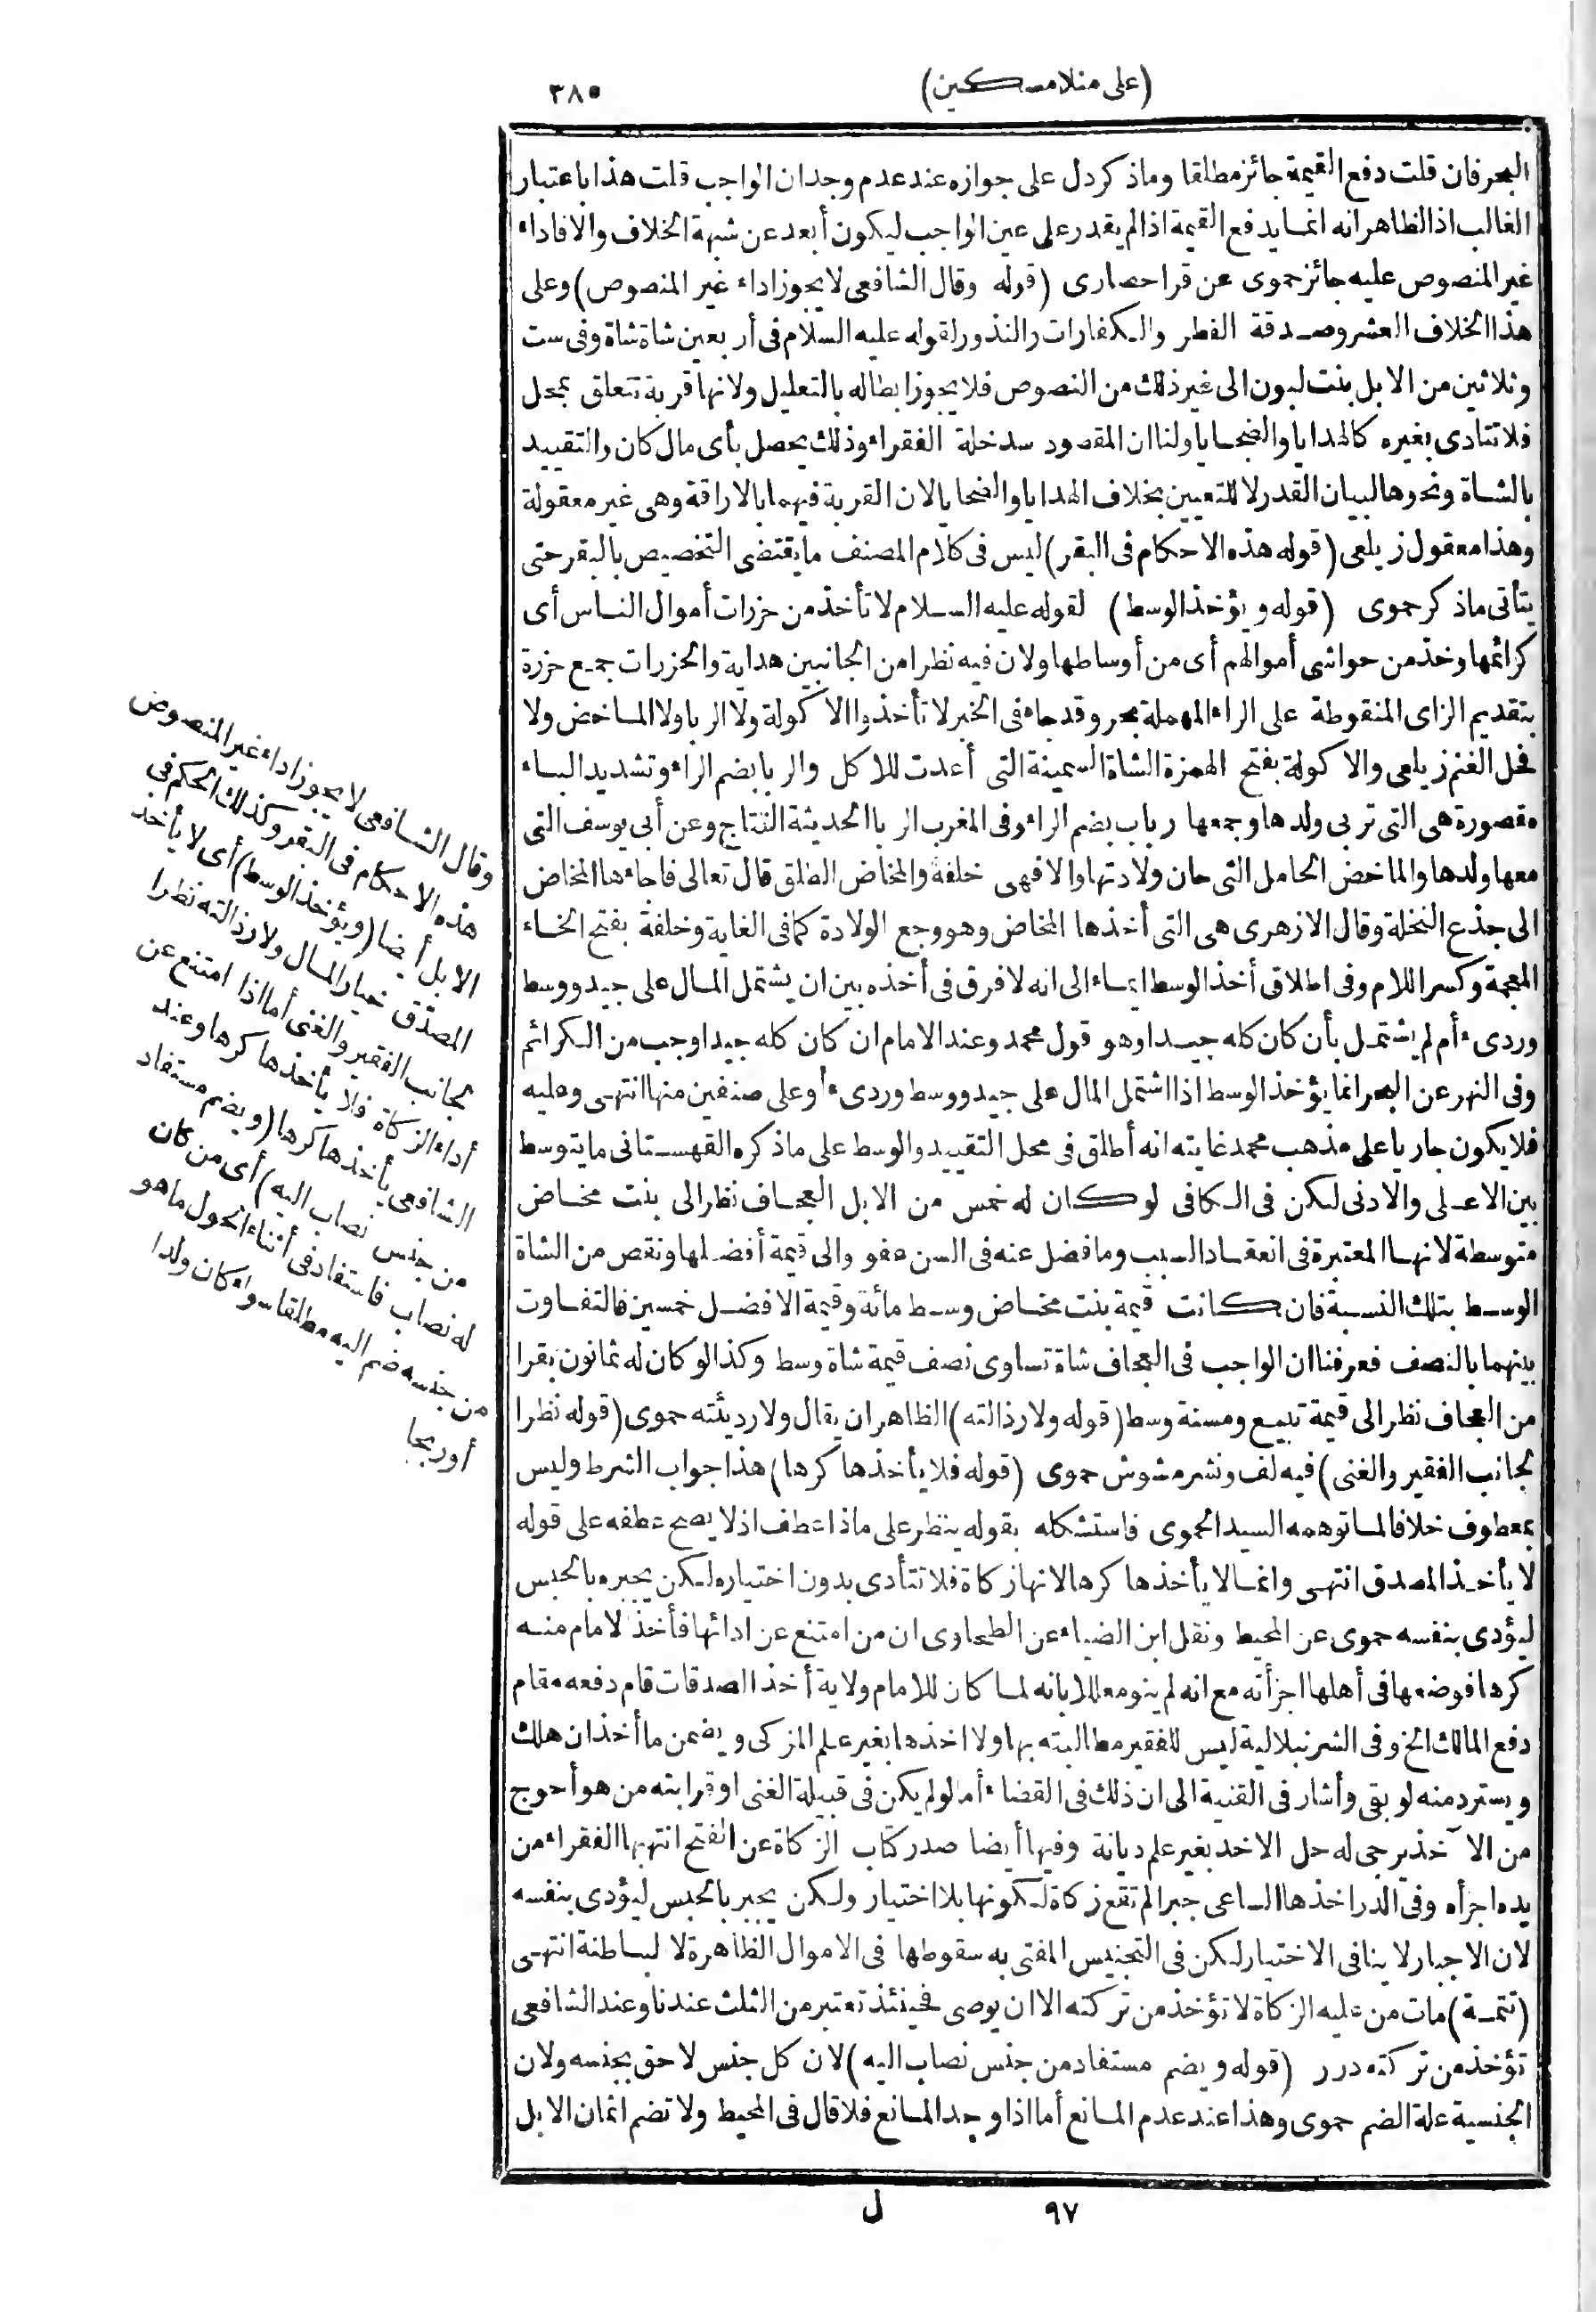 (على منلا مسكين)
٣٨٥
البحر فان قلت دفع القيمة جائز مطلقا وماذ كر دل على جوازه عند عدم وجدان الواجب قلت هذا باعتبار
الغالب اذ الظاهر انه انما يدفع القيمة اذا لم يقدر على عين الواجب ليكون أبعد عن شبهة الخلاف والا فاداء
غير المنصوص عليه جائز حموى عن قراحصارى (قوله وقال الشافعى لا يجوز اداء غير المنصوص) وعلى
هذا الخلاف العشر وصدقة الفطر والكفارات والنذور لقوله عليه السلام فى أربعين شاة شاة وفى ست
وثلاثين من الابل بنت لبون الى غير ذلك من النصوص فلا يجوز ابطاله بالتعليل ولانها قربة تتعلق بمحل
فلا تتادى بغيره كالهدايا والضحايا ولنا ان المقصود سد خلة الفقراء وذلك يحصل بأى مال كان والتقييد
بالشاة ونحوها لبيان القدر لا للتعيين بخلاف الهدايا والضحايا لان القربة فيهما بالاراقة وهى غير معقولة
وهذا معقول زيلعى (قوله هذه الاحكام فى البقر) ليس فى كلام المصنف ما يقتضى التخصيص بالبقر حتى
يتأتى ماذكر حموى (قوله ويؤخذ الوسط) لقوله عليه السلام لا تأخذ من حزرات أموال الناس أى
كرائمها وخذ من حواشى أموالهم أى من أوساطها ولان فيه نظرا من الجانبين هداية والحزرات جمع حزرة
بتقديم الزاى المنقوطة على الراء المهملة بحر وقد جاء فى الخبر لا تأخذوا الاكولة ولا الربا ولا الماخض ولا
فحل الغنم زيلعى والاكولة بفتح الهمزة الشاة السمينة التى أعدت للاكل والربا بضم الراء وتشديد الباء
مقصورة هى التى تربى ولدها وجمعها رباب بضم الراء وفى المغرب الربا الحديثة النتاج وعن أبى يوسف التى
معها ولدها والماخض الحامل التى حان ولادتها والا فهى خلفة والمخاض الطلق قال تعالى فاجاءها المخاض
الى جذع النخلة وقال الازهرى هى التى أخذها المخاض وهو وجع الولادة كما فى الغاية وخلفة بفتح الخاء
المعجمة وكسر اللام وفى اطلاق أخذ الوسط ايماء الى انه لا فرق فى أخذه بين ان يشتمل المال على جيد ووسط
وردىء أم لم يشتمل بأن كان كله جيدا وهو قول محمد وعند الامام ان كان كله جيدا وجب من الكرائم
وفى النهر عن البحر انما يؤخذ الوسط اذا اشتمل المال على جيد ووسط وردىء أو على صنفين منها انتهى وعليه
فلا يكون جاريا على مذهب محمد غايته انه أطلق فى محل التقييد والوسط على ماذكره القهستانى ما يتوسط
بين الاعلى والادنى لكن فى الكافى لو كان له خمس من الابل العجاف نظر الى بنت مخاض
متوسطة لانها المعتبرة فى انعقاد السبب وما فضل عنه فى السن عفو والى قيمة أفضلها ونقص من الشاة
الوسط بتلك النسبة فان كانت قيمة بنت مخاض وسط مائة وقيمة الافضل خمسين فالتفاوت
بينهما بالنصف فعرفنا ان الواجب فى العجاف شاة تساوى نصف قيمة شاة وسط وكذا لو كان له ثمانون بقرا
من العجاف نظر الى قيمة تبيع ومسنة وسط (قوله ولا رذالته) الظاهر ان يقال ولا رديئته حموى (قوله نظرا
لجانب الفقير والغنى) فيه لف ونشر مشوش حموى (قوله فلا يأخذها كرها) هذا جواب الشرط وليس
بمعطوف خلافا لما توهمه السيد الحموى فاستشكله بقوله ينظر على ماذا عطف اذ لا يصح عطفه على قوله
لا يأخذ المصدق انتهى وانما لا يأخذها كرها لانها زكاة فلا تتأدى بدون اختياره لكن يجبره بالحبس
ليؤدى بنفسه حموى عن المحيط ونقل ابن الضياء عن الطحاوى ان من امتنع عن ادائها فأخذ الامام منه
كرها فوضعها فى أهلها اجزأته مع انه لم ينو معللا بانه لما كان للامام ولاية أخذ الصدقات قام دفعه مقام
دفع المالك الخ وفى الشرنبلالية ليس للفقير مطالبته بها ولا اخذها بغير علم المزكى ويضمن ما أخذ ان هلك
ويسترد منه لو بقى وأشار فى القنية الى ان ذلك فى القضاء أما لو لم يكن فى قبيلة الغنى او قرابته من هو أحوج
من الآخذ يرجى له حل الاخذ بغير علم ديانة وفيها أيضا صدر كتاب الزكاة عن الفتح انتهبها الفقراء من
يده اجزأه وفى الدر اخذها الساعى جبرا لم تقع زكاة لكونها بلا اختيار ولكن يجبر بالحبس ليؤدى بنفسه
لان الاجبار لا ينافى الاختيار لكن فى التجنيس المفتى به سقوطها فى الاموال الظاهرة لا الباطنة انتهى
(تتمة) مات من عليه الزكاة لا تؤخذ من تركته الا ان يوصى فحينئذ تعتبر من الثلث عندنا وعند الشافعى
تؤخذ من تركته درر (قوله ويضم مستفاد من جنس نصاب اليه) لان كل جنس لاحق بجنسه ولان
الجنسية علة الضم حموى وهذا عند عدم المانع أما اذا وجد المانع فلا قال فى المحيط ولا تضم اثمان الابل
وقال الشافعى لا يجوز اداء غير المنصوص
هذه الاحكام فى البقر وكذلك الحكم فى
الابل أيضا (ويؤخذ الوسط) أى لا يأخذ
المصدّق خيار المال ولا رذالته نظرا
لجانب الفقير والغنى أما اذا امتنع عن
أداء الزكاة فلا يأخذها كرها وعند
الشافعى يأخذها كرها (ويضم مستفاد
من جنس نصاب اليه) أى من كان
له نصاب فاستفاد فى أثناء الحول ما هو
من جنسه ضم اليه مطلقا سواء كان ولدا
أو ربحا
٩٧
ل